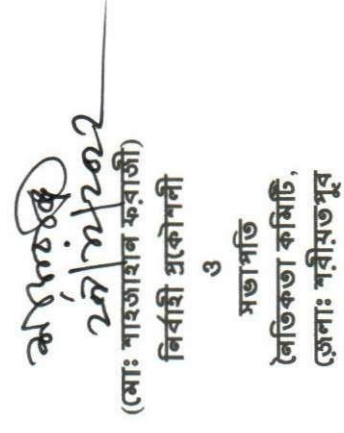 (মোঃ শাহজাহান ফরাজী)
নির্বাহী প্রকৌশলী
ও
সভাপতি
নৈতিকতা কমিটি,
জেলাঃ শরীয়তপুর